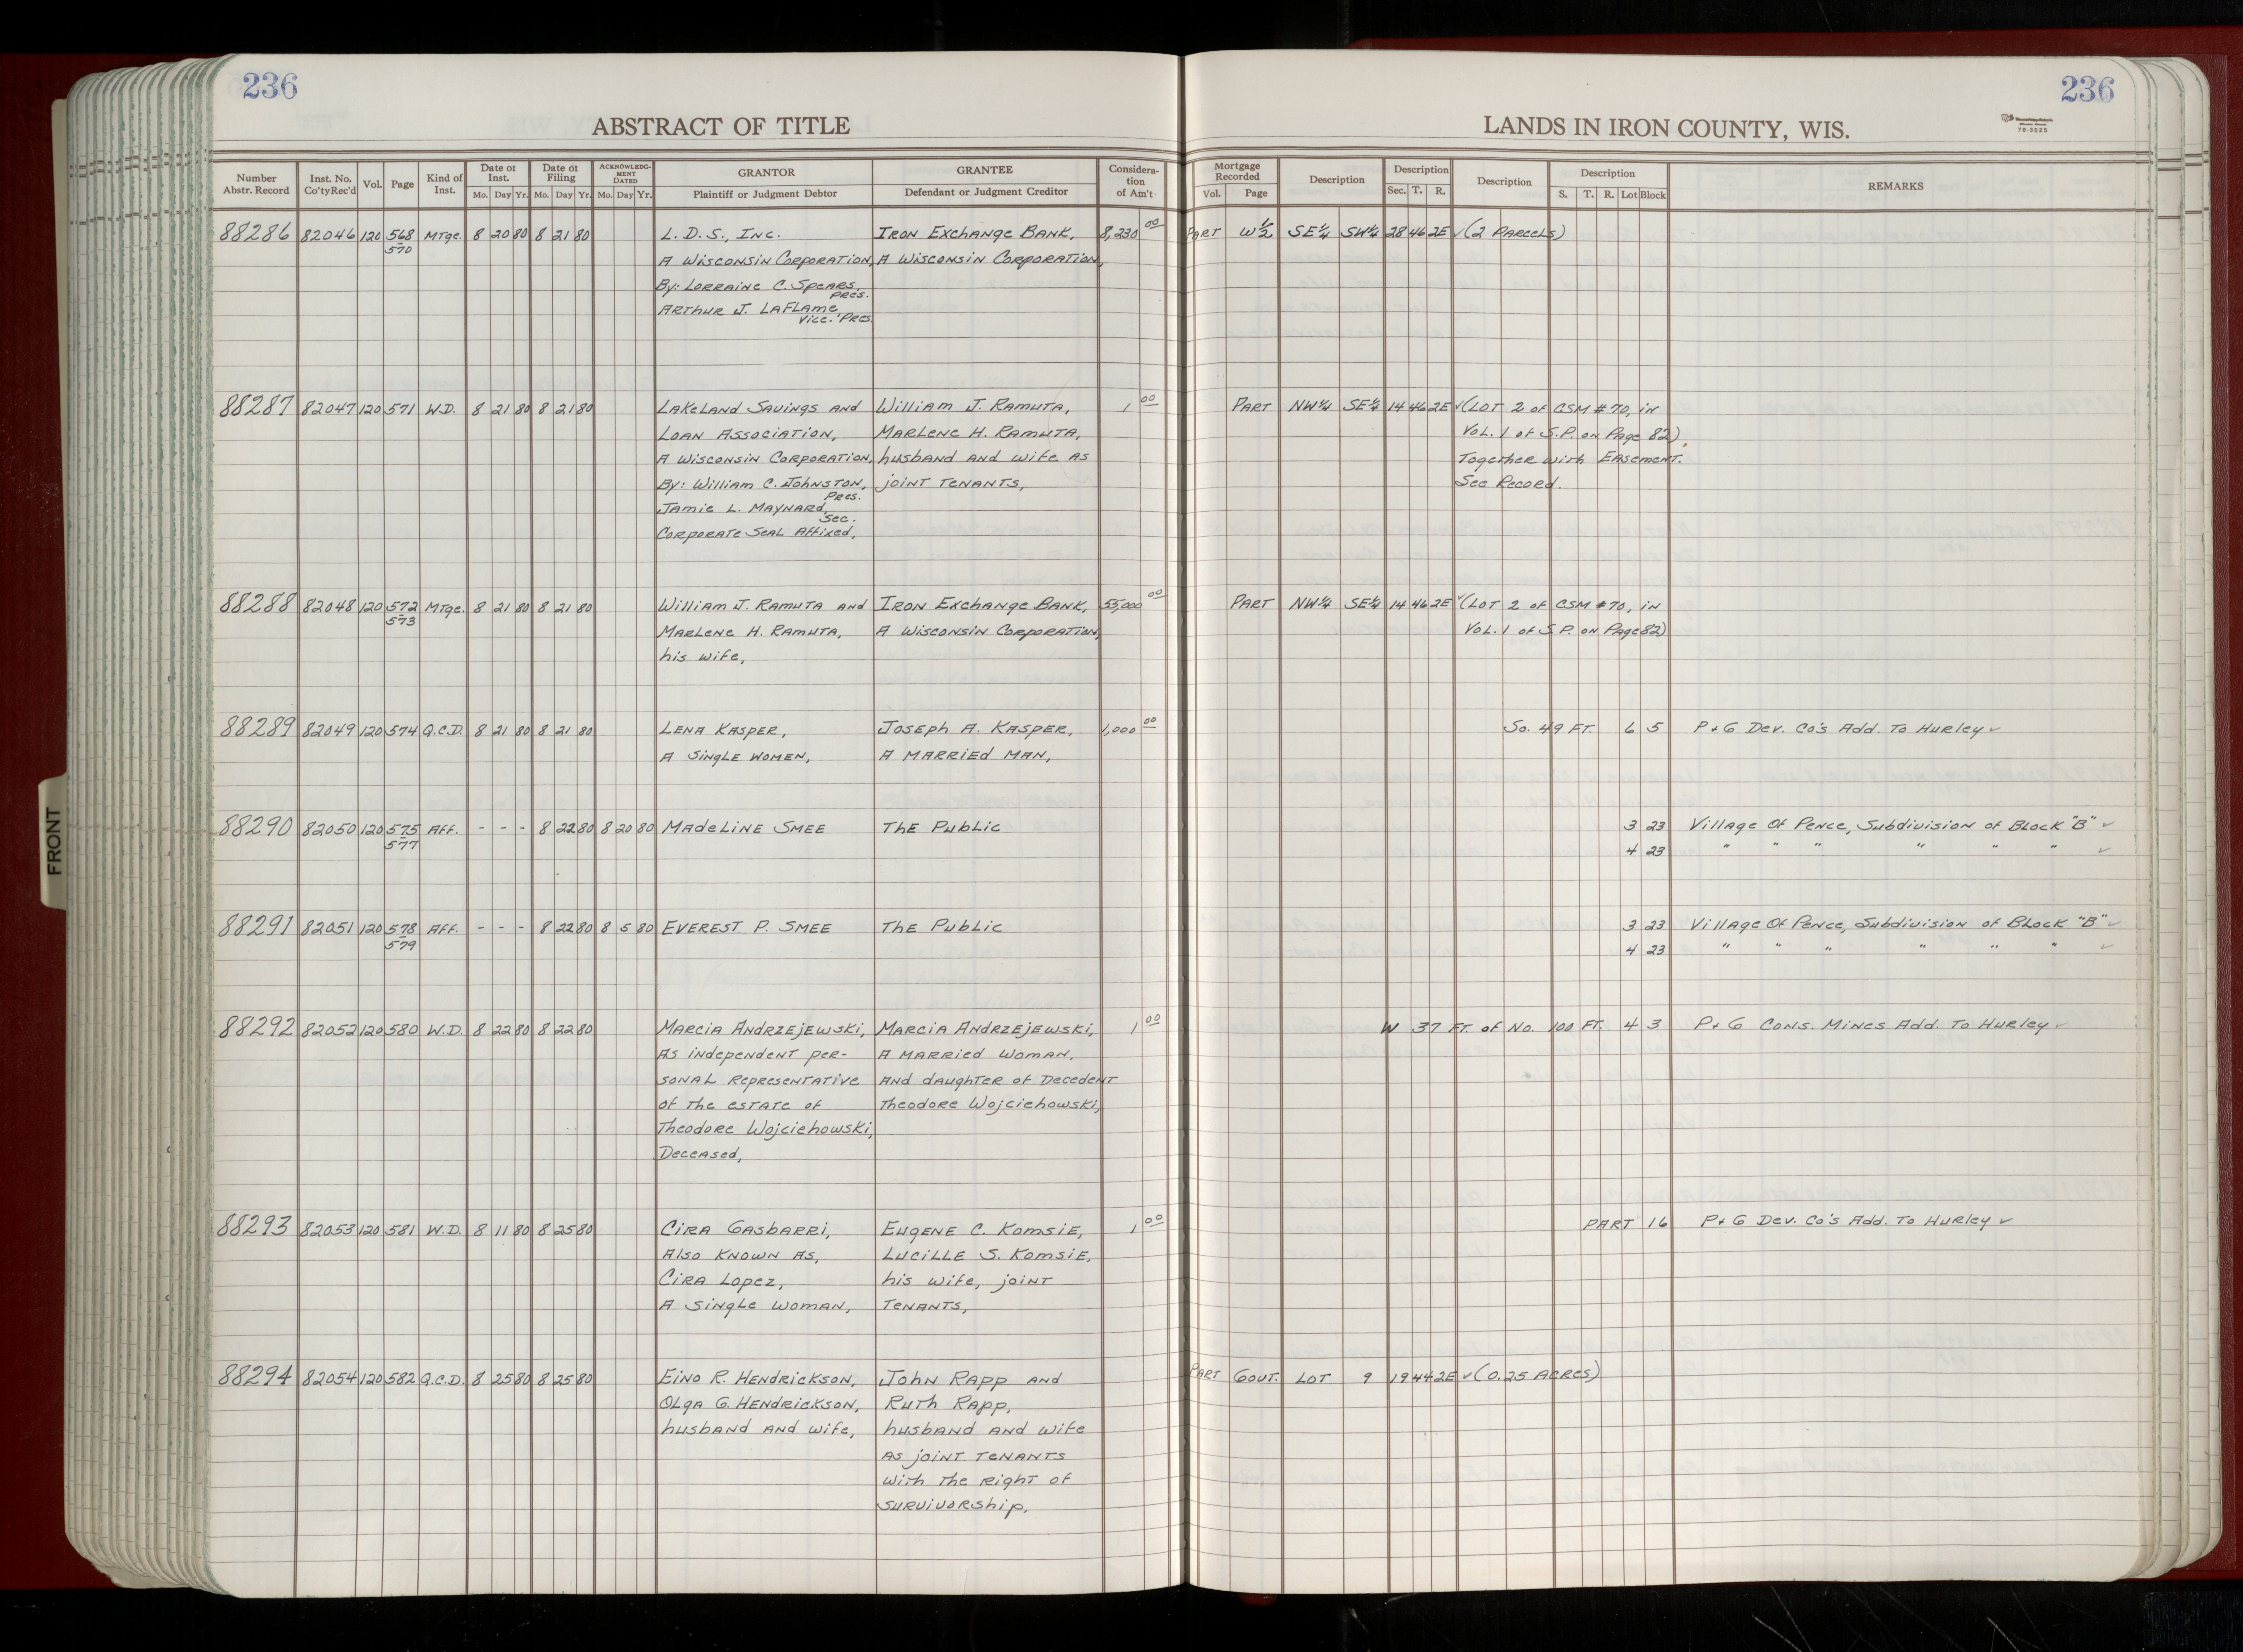 236
236
ABSTRACT OF TITLE
LANDS IN IRON COUNTY, WIS.
78-3525
Number Abstr. Record | Inst. No. Co'ty Rec'd | Vol. | Page | Kind of Inst. | Date of Inst. Mo. Day Yr. | Date of Filing Mo. Day Yr. | ACKNOWLEDGMENT DATED Mo. Day Yr. | GRANTOR Plaintiff or Judgment Debtor | GRANTEE Defendant or Judgment Creditor | Consideration of Am't | Mortgage Recorded Vol. Page | Description | Description Sec. T. R. | Description | Description S. T. R. Lot Block | REMARKS
88286 82046 120 568 Mtge. 8 20 80 8 21 80 L. D. S., Inc. Iron Exchange Bank, 8,230 00 PART W½ SE¼ SW¼ 28 46 2E ✓(2 PARCELS)
570 A Wisconsin Corporation, A Wisconsin Corporation,
By: Lorraine C. Spears,
Pres.
Arthur J. LaFlame,
Vice. Pres.
88287 82047 120 571 W.D. 8 21 80 8 21 80 Lakeland Savings and William J. Ramuta, 1 00 PART NW¼ SE¼ 14 46 2E ✓(LOT 2 of CSM #70, in
Loan Association, Marlene H. Ramuta, Vol. 1 of S.P. on Page 82),
A Wisconsin Corporation, husband and wife as Together with Easement.
By: William C. Johnston, joint tenants, See Record.
Pres.
Jamie L. Maynard,
Sec.
Corporate Seal Affixed,
88288 82048 120 572 Mtge. 8 21 80 8 21 80 William J. Ramuta and Iron Exchange Bank, 55,000 00 PART NW¼ SE¼ 14 46 2E ✓(LOT 2 of CSM #70, in
573 Marlene H. Ramuta, A Wisconsin Corporation, Vol. 1 of S.P. on Page 82)
his wife,
88289 82049 120 574 Q.C.D. 8 21 80 8 21 80 Lena Kasper, Joseph A. Kasper, 1,000 00 So. 49 FT. 6 5 P+G Dev. Co's Add. To Hurley ✓
A Single Women, A Married Man,
88290 82050 120 575 Aff. - - - 8 22 80 8 20 80 Madeline Smee The Public 3 23 Village Of Pence, Subdivision of Block "B" ✓
577 4 23 " " " " " " ✓
88291 82051 120 578 Aff. - - - 8 22 80 8 5 80 Everest P. Smee The Public 3 23 Village Of Pence, Subdivision of Block "B" ✓
579 4 23 " " " " " " ✓
88292 82052 120 580 W.D. 8 22 80 8 22 80 Marcia Andrzejewski, Marcia Andrzejewski, 1 00 W 37 FT. of No. 100 FT. 4 3 P+G Cons. Mines Add. To Hurley ✓
As independent per- A married woman.
sonal representative and daughter of Decedent
of the estate of Theodore Wojciehowski,
Theodore Wojciehowski,
Deceased,
88293 82053 120 581 W.D. 8 11 80 8 25 80 Cira Gasbarri, Eugene C. Komsie, 1 00 PART 16 P+G Dev. Co's Add. To Hurley ✓
Also known as, Lucille S. Komsie,
Cira Lopez, his wife, joint
A single woman, tenants,
88294 82054 120 582 Q.C.D. 8 25 80 8 25 80 Eino R. Hendrickson, John Rapp and PART GOVT. LOT 9 19 44 2E ✓(0.25 ACRES)
Olga G. Hendrickson, Ruth Rapp,
husband and wife, husband and wife
as joint tenants
with the right of
survivorship,
FRONT